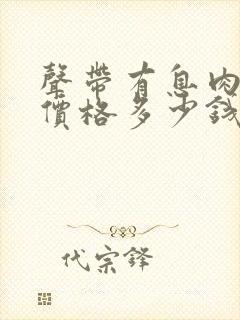 聲帶有息肉
價格多少錢
代宗鋒